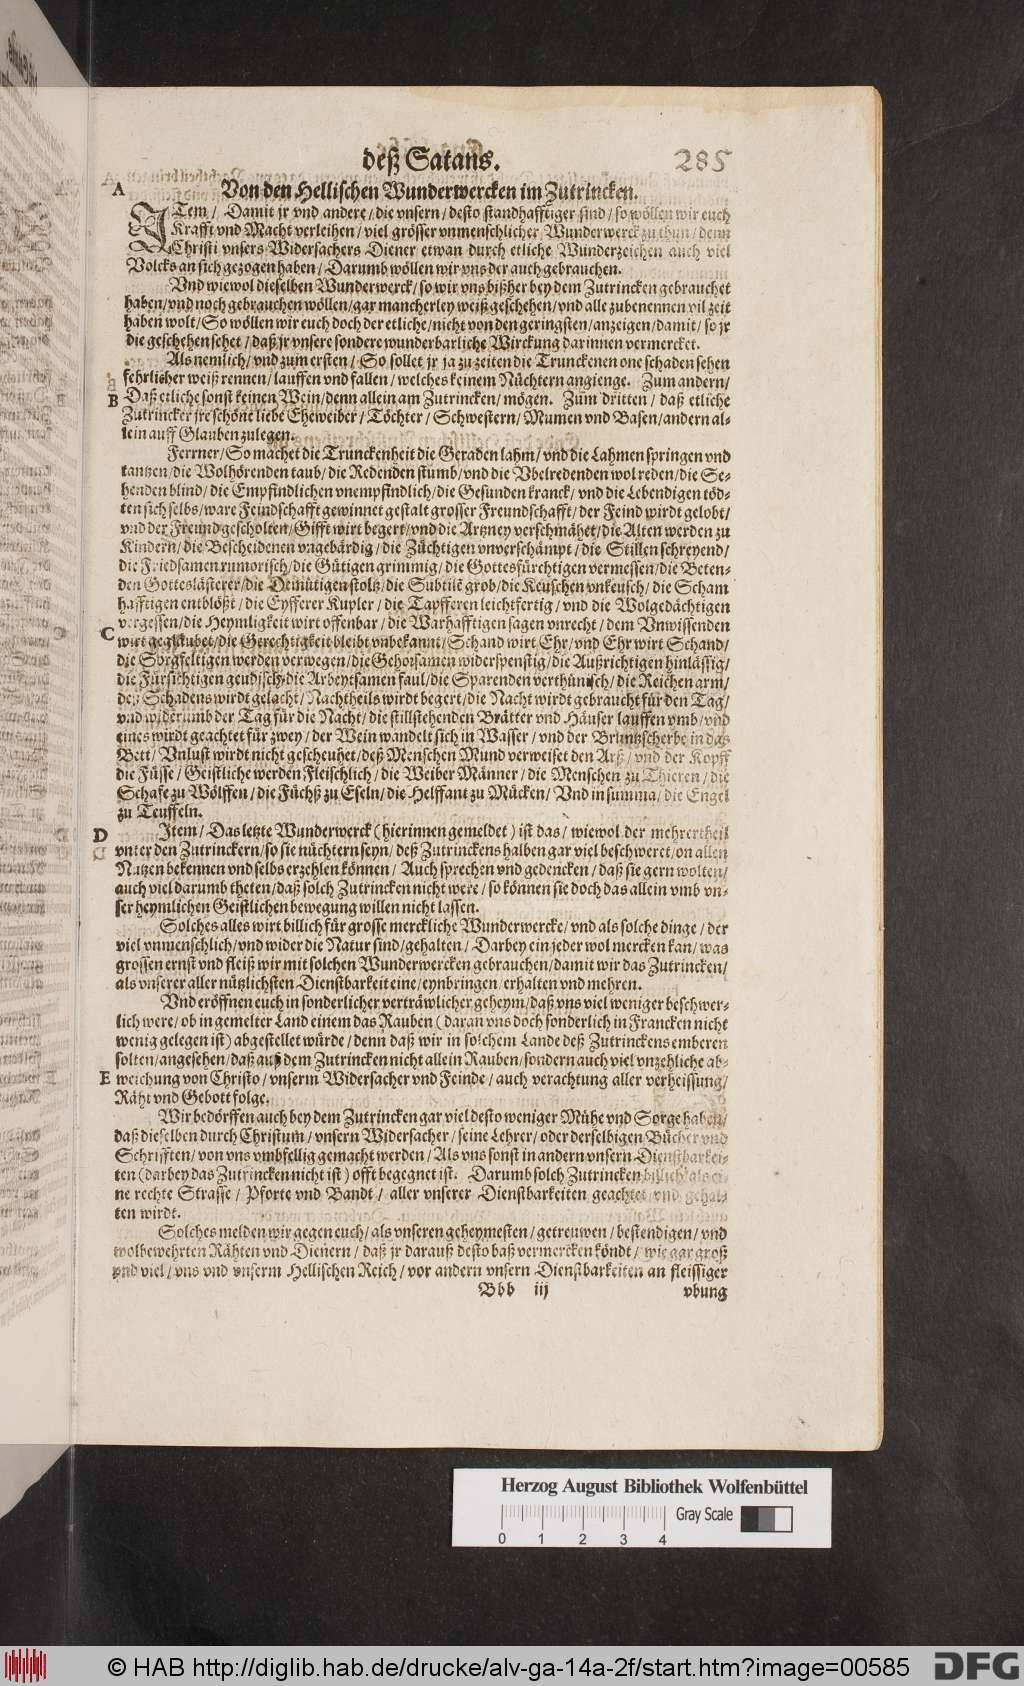 deß Satans.
285
A
Von den Hellischen Wunderwercken im Zutrincken.
ITem / Damit jr vnd andere / die vnsern / desto standhafftiger sind / so wöllen wir euch
Krafft vnd Macht verleihen / viel grösser vnmenschlicher Wunderwerck zu thun / denn
Christi vnsers Widersachers Diener etwan durch etliche Wunderzeichen auch viel
Volcks an sich gezogen haben / Darumb wöllen wir vns der auch gebrauchen.
Vnd wiewol dieselben Wunderwerck / so wir vns bißher bey dem Zutrincken gebrauchet
haben / vnd noch gebrauchen wöllen / gar mancherley weiß geschehen / vnd alle zubenennen vil zeit
haben wolt / So wöllen wir euch doch der etliche / nicht von den geringsten / anzeigen / damit / so jr
die geschehen sehet / daß jr vnsere sondere wunderbarliche Wirckung darinnen vermercket.
Als nemlich / vnd zum ersten / So sollet jr ja zu zeiten die Trunckenen one schaden sehen
fehrlicher weiß rennen / lauffen vnd fallen / welches keinem Nüchtern angienge. Zum andern /
B
Daß etliche sonst keinen Wein / denn allein am Zutrincken / mögen. Zum dritten / daß etliche
Zutrincker jre schöne liebe Eheweiber / Töchter / Schwestern / Mumen vnd Basen / andern al-
lein auff Glauben zulegen.
Ferrner / So machet die Trunckenheit die Geraden lahm / vnd die Lahmen springen vnd
tantzen / die Wolhörenden taub / die Redenden stumb / vnd die Vbelredenden wol reden / die Se-
henden blind / die Empfindlichen vnempfindlich / die Gesunden kranck / vnd die Lebendigen töd-
ten sich selbs / ware Feindschafft gewinnet gestalt grosser Freundschafft / der Feind wirdt gelobt /
vnd der Freund gescholten / Gifft wirt begert / vnd die Artzney verschmähet / die Alten werden zu
Kindern / die Bescheidenen vngebärdig / die Züchtigen vnverschämpt / die Stillen schreyend /
die Friedsamen rumorisch / die Gütigen grimmig / die Gottesfürchtigen vermessen / die Beten-
den Gotteslästerer / die Demütigen stoltz / die Subtilē grob / die Keuschen vnkeusch / die Scham
hafftigen entblößt / die Eyfferer Kupler / die Tapfferen leichtfertig / vnd die Wolgedächtigen
vergessen / die Heymligkeit wirt offenbar / die Warhafftigen sagen vnrecht / dem Vnwissenden
C
wirt geglaubet / die Gerechtigkeit bleibt vnbekannt / Schand wirt Ehr / vnd Ehr wirt Schand /
die Sorgfeltigen werden verwegen / die Gehorsamen widerspenstig / die Außrichtigen hinlässig /
die Fürsichtigen geudisch / die Arbeytsamen faul / die Sparenden verthünisch / die Reichen arm /
deß Schadens wirdt gelacht / Nachtheils wirdt begert / die Nacht wirdt gebraucht für den Tag /
vnd widerumb der Tag für die Nacht / die stillstehenden Brätter vnd Häuser lauffen vmb / vnd
eines wirdt geachtet für zwey / der Wein wandelt sich in Wasser / vnd der Bruntzscherbe in das
Bett / Vnlust wirdt nicht gescheuhet / deß Menschen Mund verweiset den Arß / vnd der Kopff
die Füsse / Geistliche werden Fleischlich / die Weiber Männer / die Menschen zu Thieren / die
Schafe zu Wölffen / die Füchß zu Eseln / die Helffant zu Mücken / Vnd in summa / die Engel
zu Teuffeln.
D
Item / Das letzte Wunderwerck (hierinnen gemeldet) ist das / wiewol der mehrertheil
vnter den Zutrinckern / so sie nüchtern seyn / deß Zutrinckens halben gar viel beschweret / on allen
Nutzen bekennen vnd selbs erzehlen können / Auch sprechen vnd gedencken / daß sie gern wolten /
auch viel darumb theten / daß solch Zutrincken nicht were / so können sie doch das allein vmb vn-
ser heymlichen Geistlichen bewegung willen nicht lassen.
Solches alles wirt billich für grosse merckliche Wunderwercke / vnd als solche dinge / der
viel vnmenschlich / vnd wider die Natur sind / gehalten / Darbey ein jeder wol mercken kan / was
grossen ernst vnd fleiß wir mit solchen Wunderwercken gebrauchen / damit wir das Zutrincken /
als vnserer aller nützlichsten Dienstbarkeit eine / eynbringen / erhalten vnd mehren.
Vnd eröffnen euch in sonderlicher verträwlicher geheym / daß vns viel weniger beschwer-
lich were / ob in gemelter Land einem das Rauben (daran vns doch sonderlich in Francken nicht
wenig gelegen ist) abgestellet würde / denn daß wir in solchem Lande deß Zutrinckens emberen
solten / angesehen / daß auß dem Zutrincken nicht allein Rauben / sondern auch viel vnzehliche ab-
E
weichung von Christo / vnserm Widersacher vnd Feinde / auch verachtung aller verheissung /
Räht vnd Gebott folge.
Wir bedörffen auch bey dem Zutrincken gar viel desto weniger Mühe vnd Sorge haben /
daß dieselben durch Christum / vnsern Widersacher / seine Lehrer / oder derselbigen Bücher vnd
Schrifften / von vns vmbfellig gemacht werden / Als vns sonst in andern vnsern Dienstbarkei-
ten (darbey das Zutrincken nicht ist) offt begegnet ist. Darumb solch Zutrincken billich als ei-
ne rechte Strasse / Pforte vnd Bandt / aller vnserer Dienstbarkeiten geachtet vnd gehal-
ten wirdt.
Solches melden wir gegen euch / als vnseren geheymesten / getreuwen / bestendigen / vnd
wolbewehrten Rähten vnd Dienern / daß jr darauß desto baß vermercken köndt / wie gar groß
vnd viel / vns vnd vnserm Hellischen Reich / vor andern vnsern Dienstbarkeiten an fleissiger
Bbb iij
vbung
Herzog August Bibliothek Wolfenbüttel
Gray Scale
0 1 2 3 4
© HAB http://diglib.hab.de/drucke/alv-ga-14a-2f/start.htm?image=00585
DFG